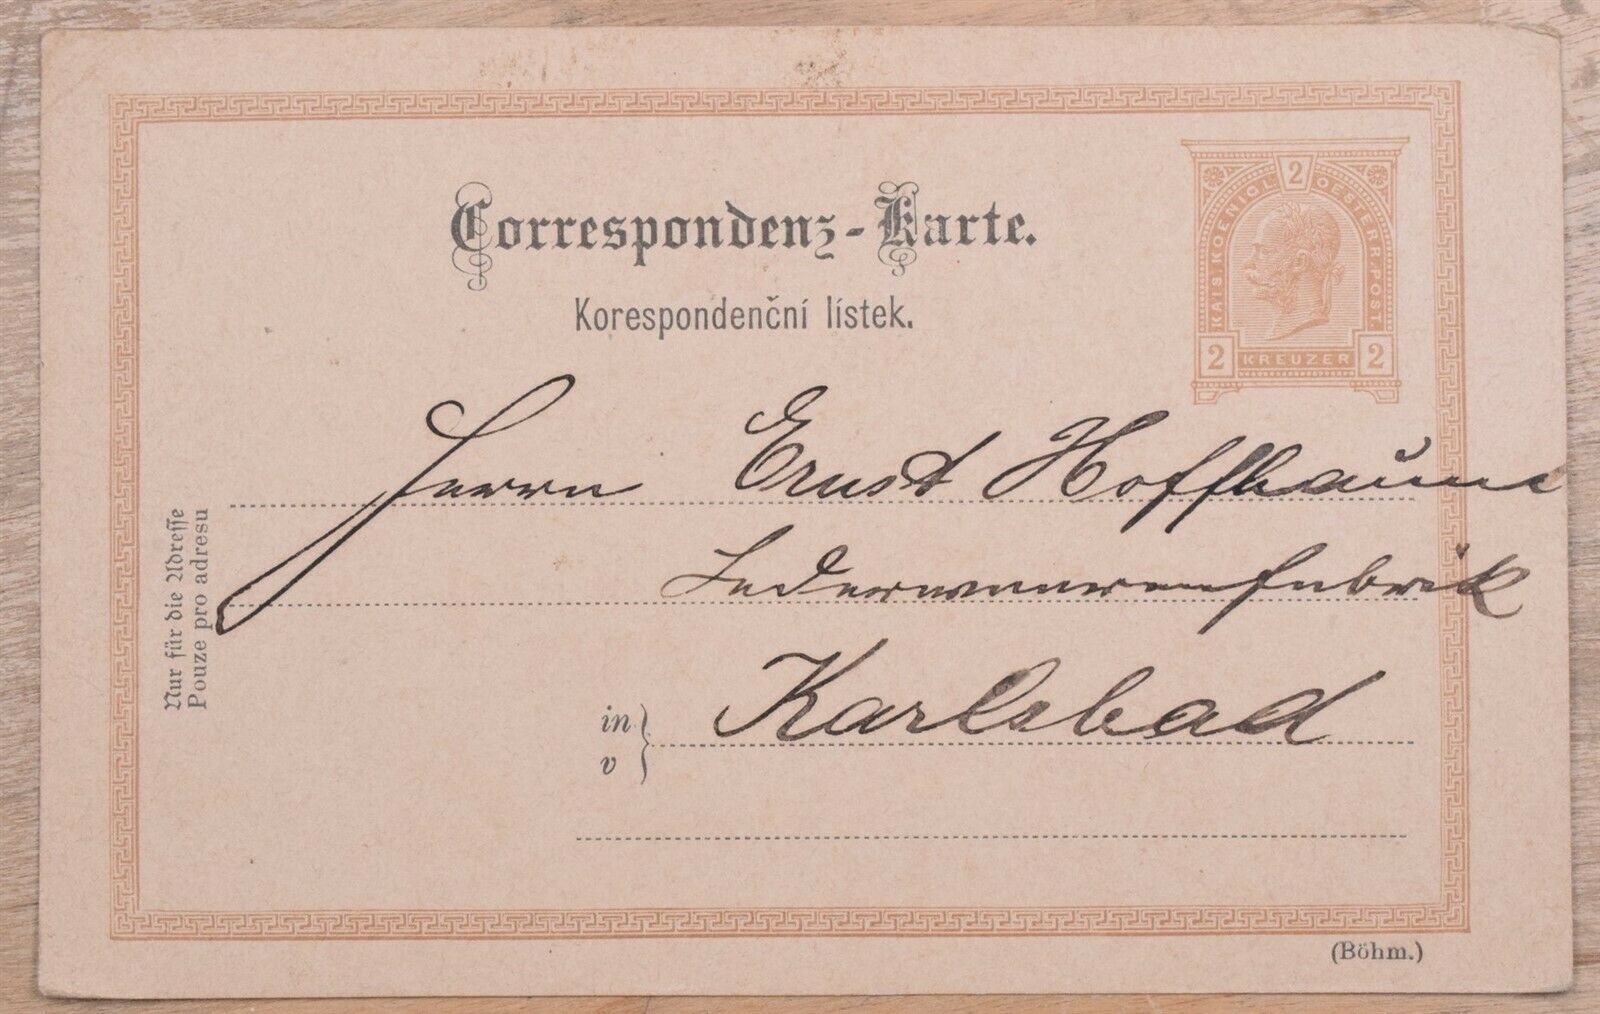 Correspondenz-Karte.
Korespondenční lístek.
2
KAIS. KOENIGL. OESTERR. POST.
2 KREUZER 2
Herrn Ernst Hoffbaum
Lederwaarenfabrik
in
v
Karlsbad
Nur für die Adresse
Pouze pro adresu
(Böhm.)